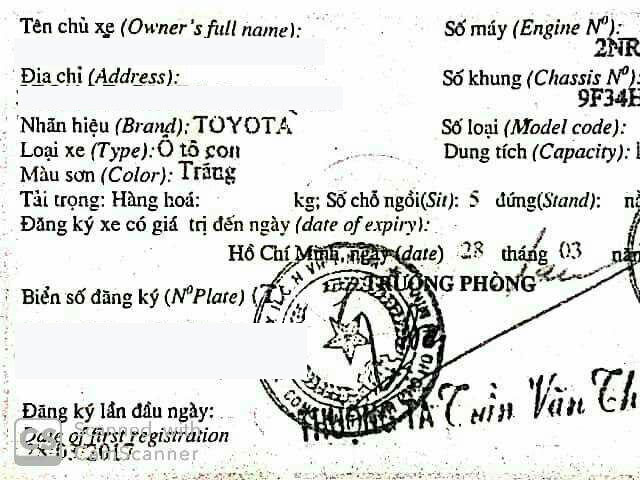 Tên chủ xe (Owner's full name): Số máy (Engine Nº):
2NR
Địa chỉ (Address): Số khung (Chassis Nº):
9F34H
Nhãn hiệu (Brand): TOYOTA Số loại (Model code):
Loại xe (Type): Ô tô con Dung tích (Capacity):
Màu sơn (Color): Trắng
Tải trọng: Hàng hoá: kg; Số chỗ ngồi(Sit): 5 đứng(Stand):
Đăng ký xe có giá trị đến ngày (date of expiry):
Hồ Chí Minh, ngày (date) 28 tháng 03
TRƯỞNG PHÒNG
Biển số đăng ký (NºPlate)
Văn
Đăng ký lần đầu ngày:
Date of first registration
Scanned with
CamScanner